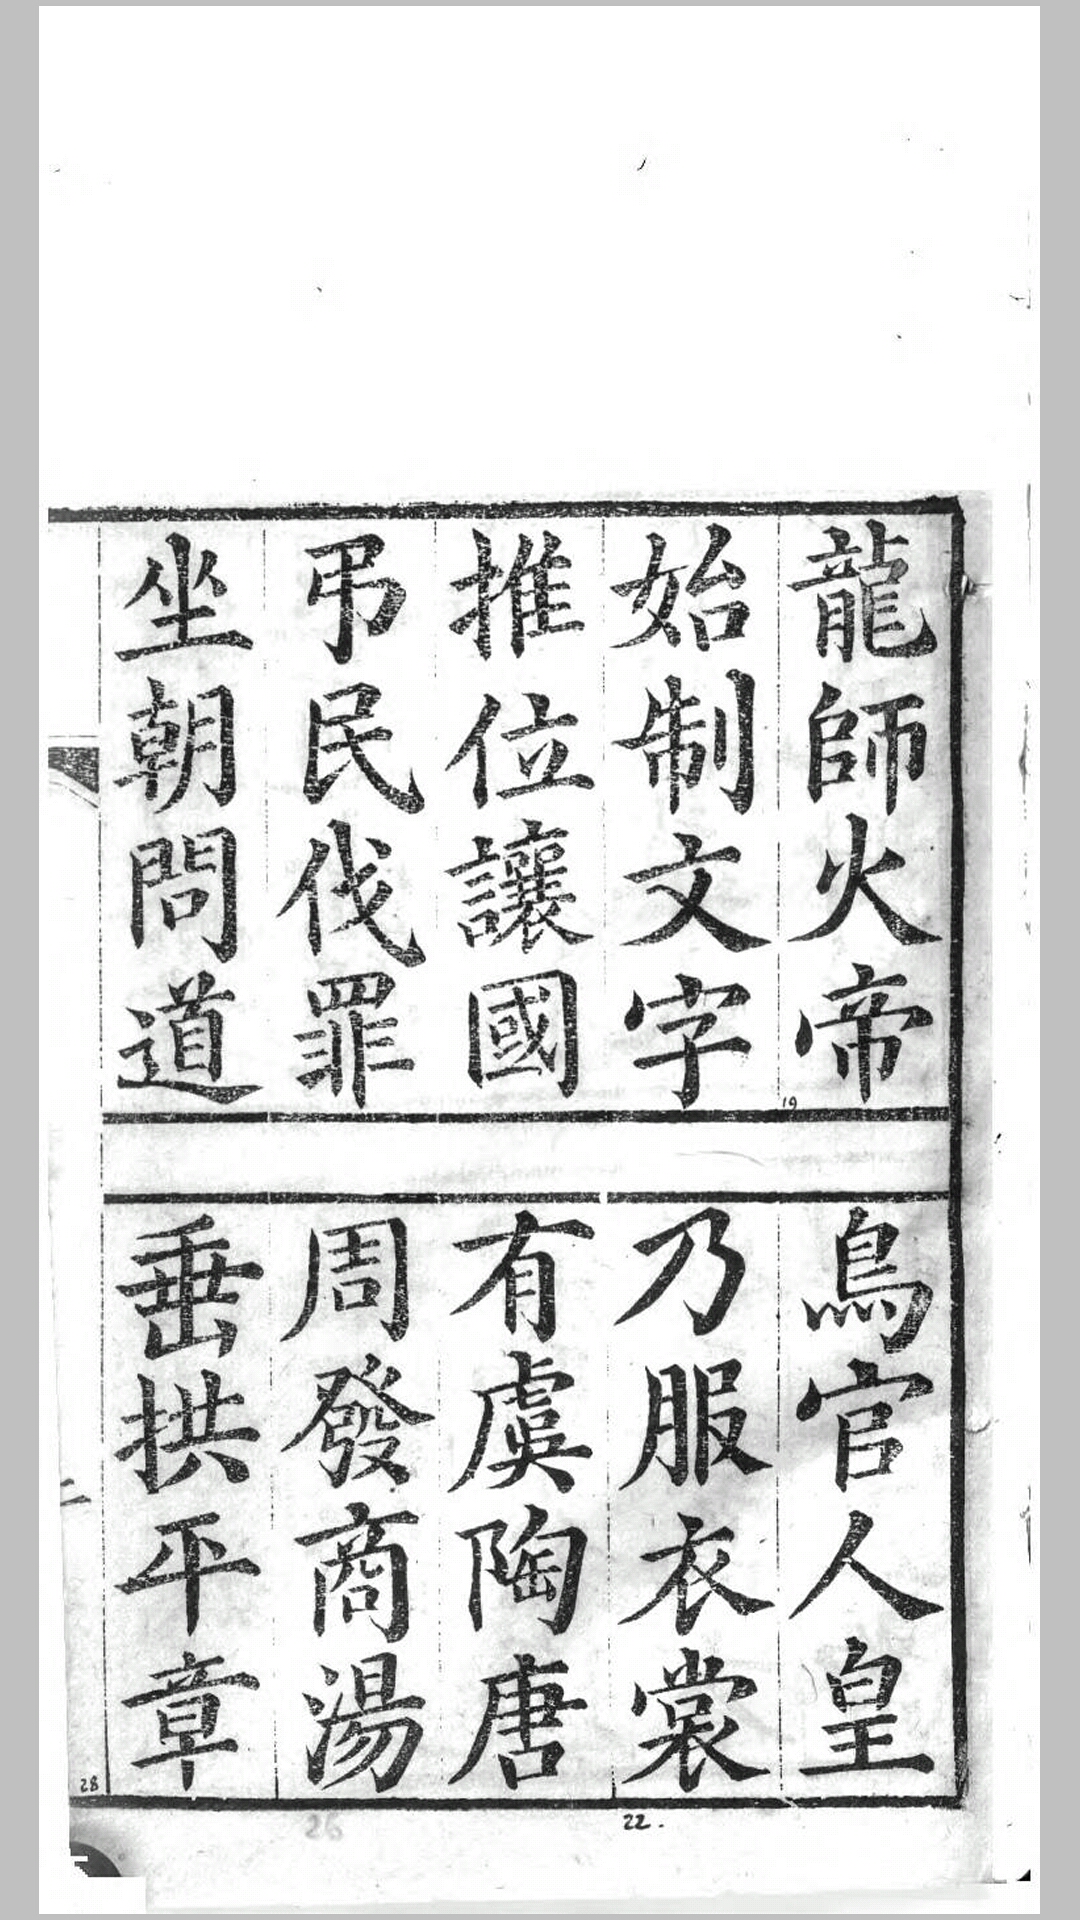 龍師火帝
鳥官人皇
始制文字
乃服衣裳
推位讓國
有虞陶唐
弔民伐罪
周發商湯
坐朝問道
垂拱平章
19
22.
26
28